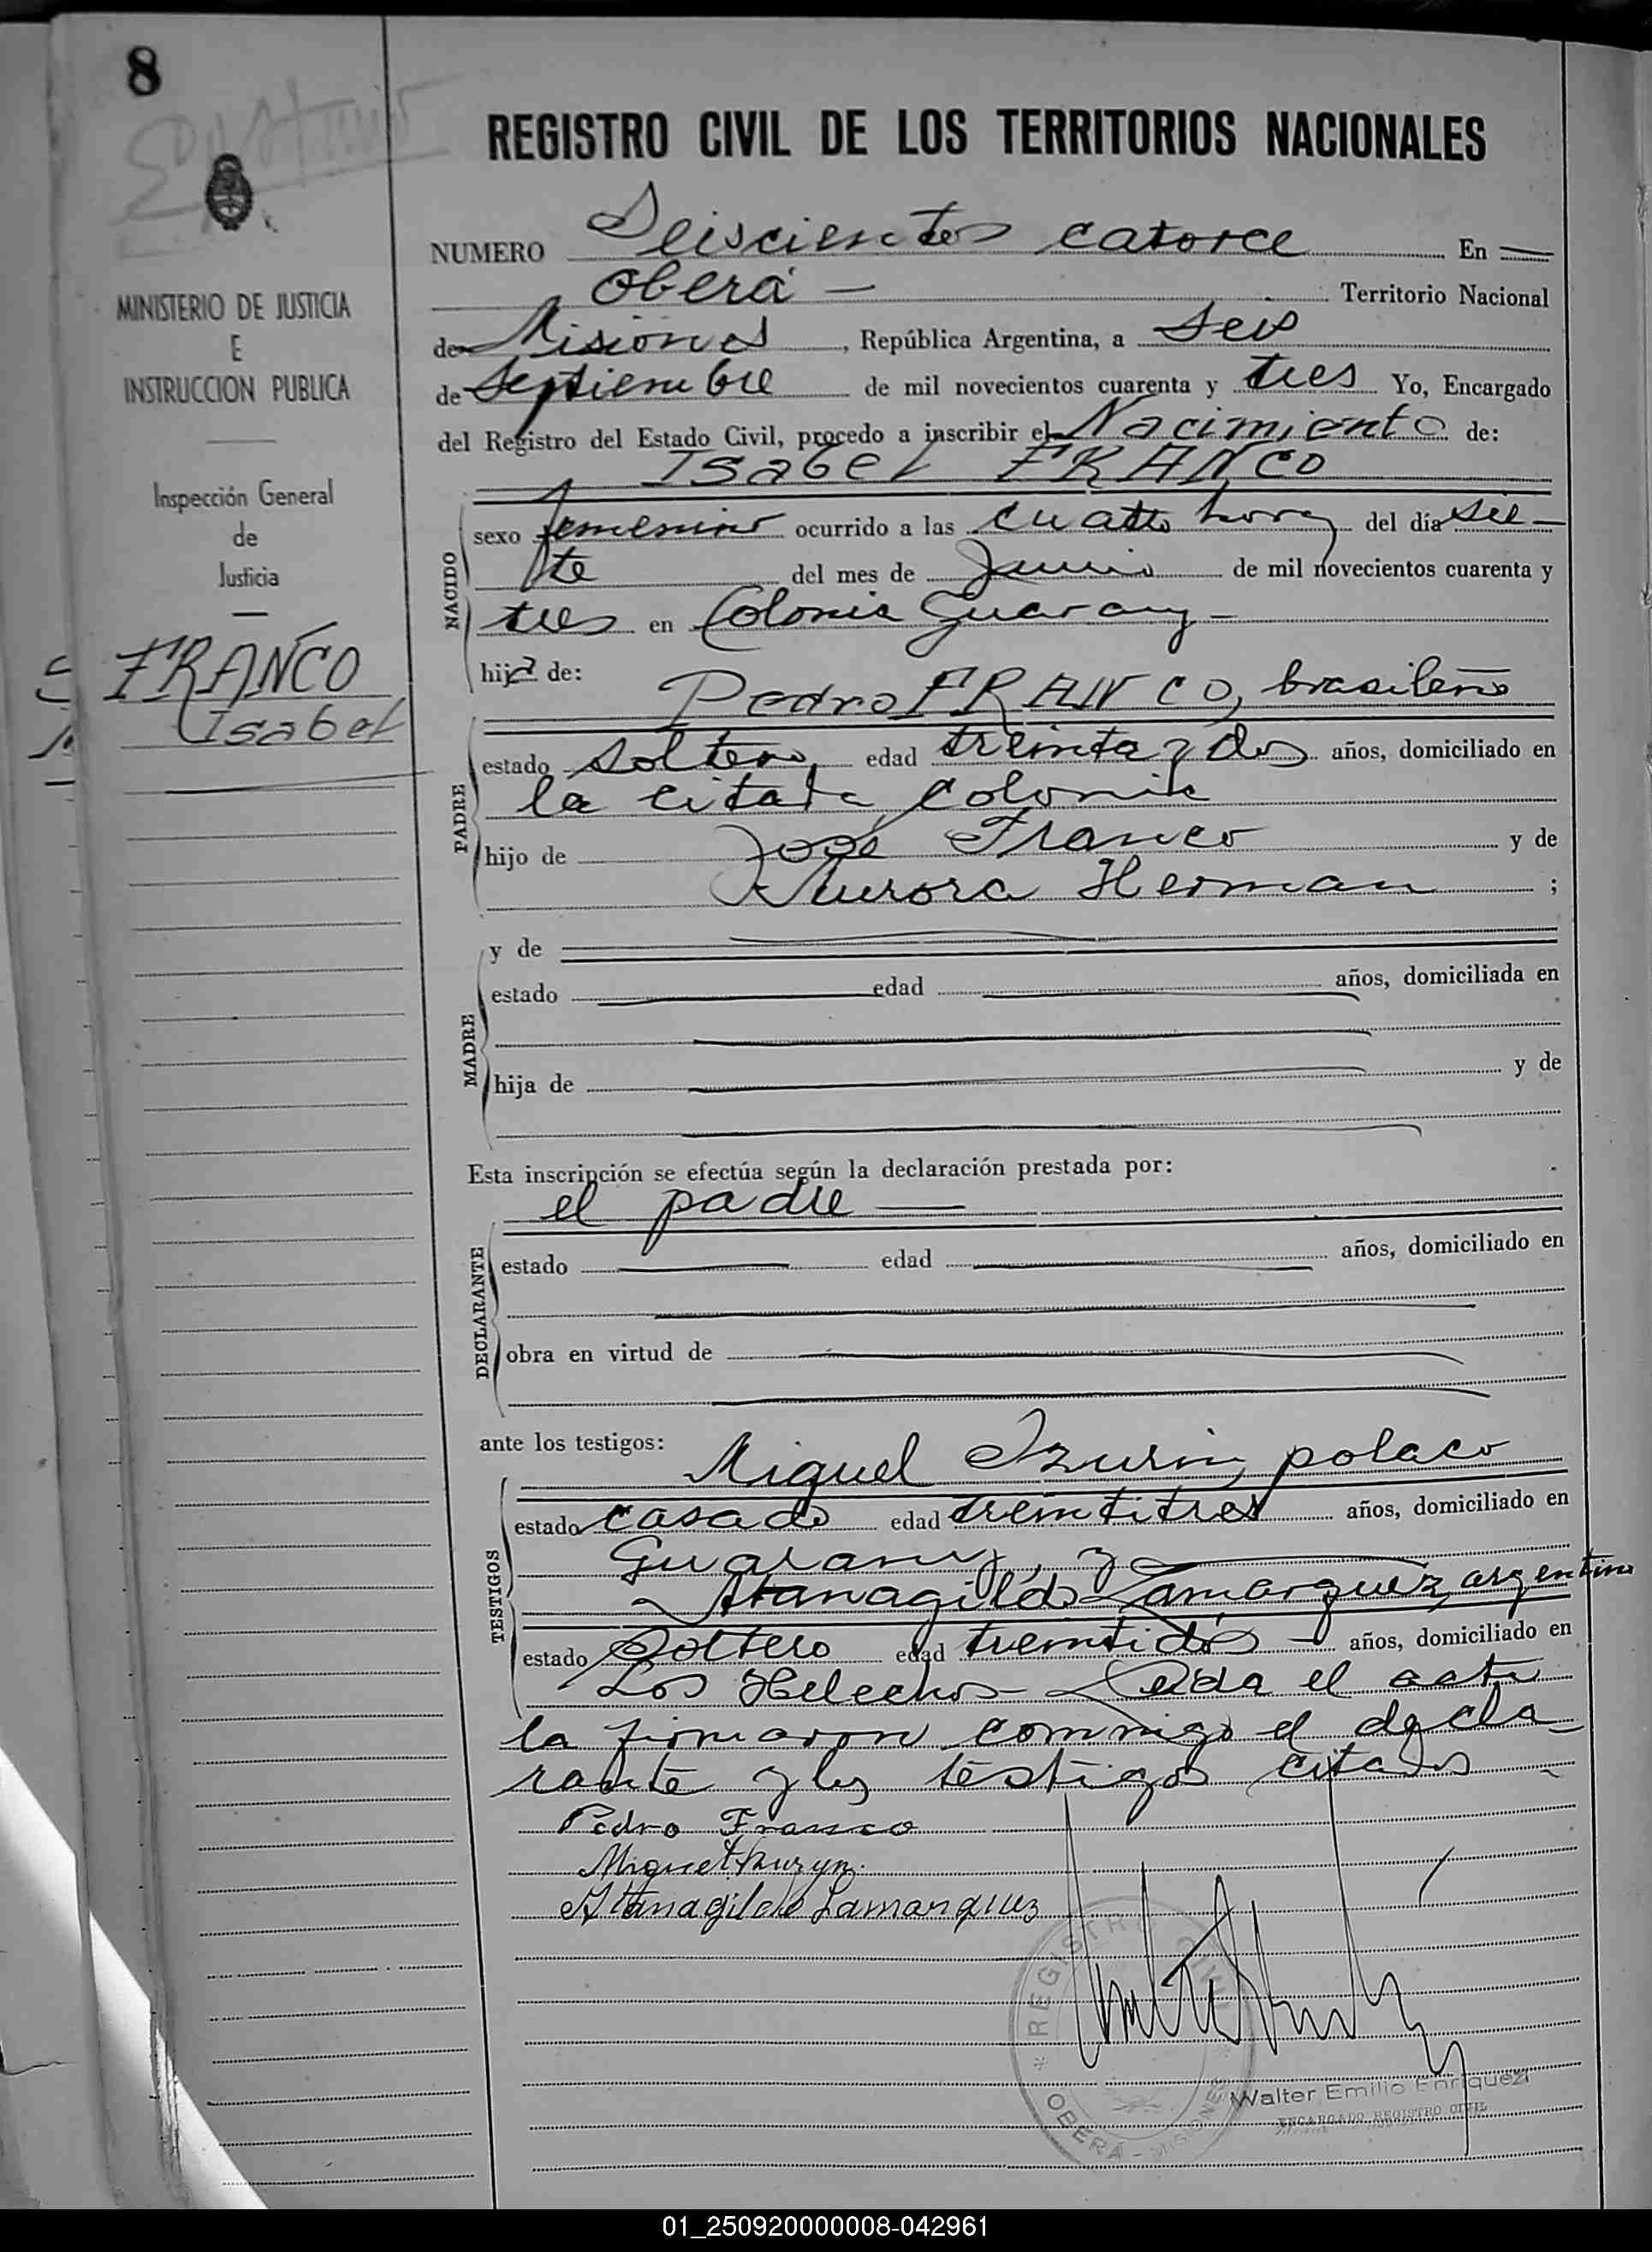 8
REGISTRO CIVIL DE LOS TERRITORIOS NACIONALES
NUMERO Seiscientos catorce En
Oberá — Territorio Nacional
de Misiones, República Argentina, a Seis
de Septiembre de mil novecientos cuarenta y tres Yo, Encargado
del Registro del Estado Civil, procedo a inscribir el Nacimiento de:
Isabel FRANCO
NACIDO
sexo femenino ocurrido a las cuatro horas del día sie-
te del mes de Junio de mil novecientos cuarenta y
tres en Colonia Guarany -
hija de:
PADRE
Pedro FRANCO, brasileño
estado soltero, edad treinta y dos años, domiciliado en
la citada colonia
hijo de José Franco y de
Aurora Herman ;
MADRE
y de
estado edad años, domiciliada en
hija de y de
Esta inscripción se efectúa según la declaración prestada por:
DECLARANTE
el padre —
estado edad años, domiciliado en
obra en virtud de
ante los testigos:
TESTIGOS
Miguel polaco
estado casado edad treintitres años, domiciliado en
Guarany, y
Atanagildo Lamarquez, argentino
estado Soltero edad treintidós — años, domiciliado en
Los Helechos - Leida el acta
la firmaron conmigo el decla-
rante y los testigos citados -
Pedro Franco
Miguel
Atanagildo Lamarquez
REGISTRO CIVIL
* OBERÁ - MISIONES *
Walter Emilio Enriquez
ENCARGADO REGISTRO CIVIL
MINISTERIO DE JUSTICIA
E
INSTRUCCION PUBLICA
Inspección General
de
Justicia
FRANCO
Isabel
01_250920000008-042961